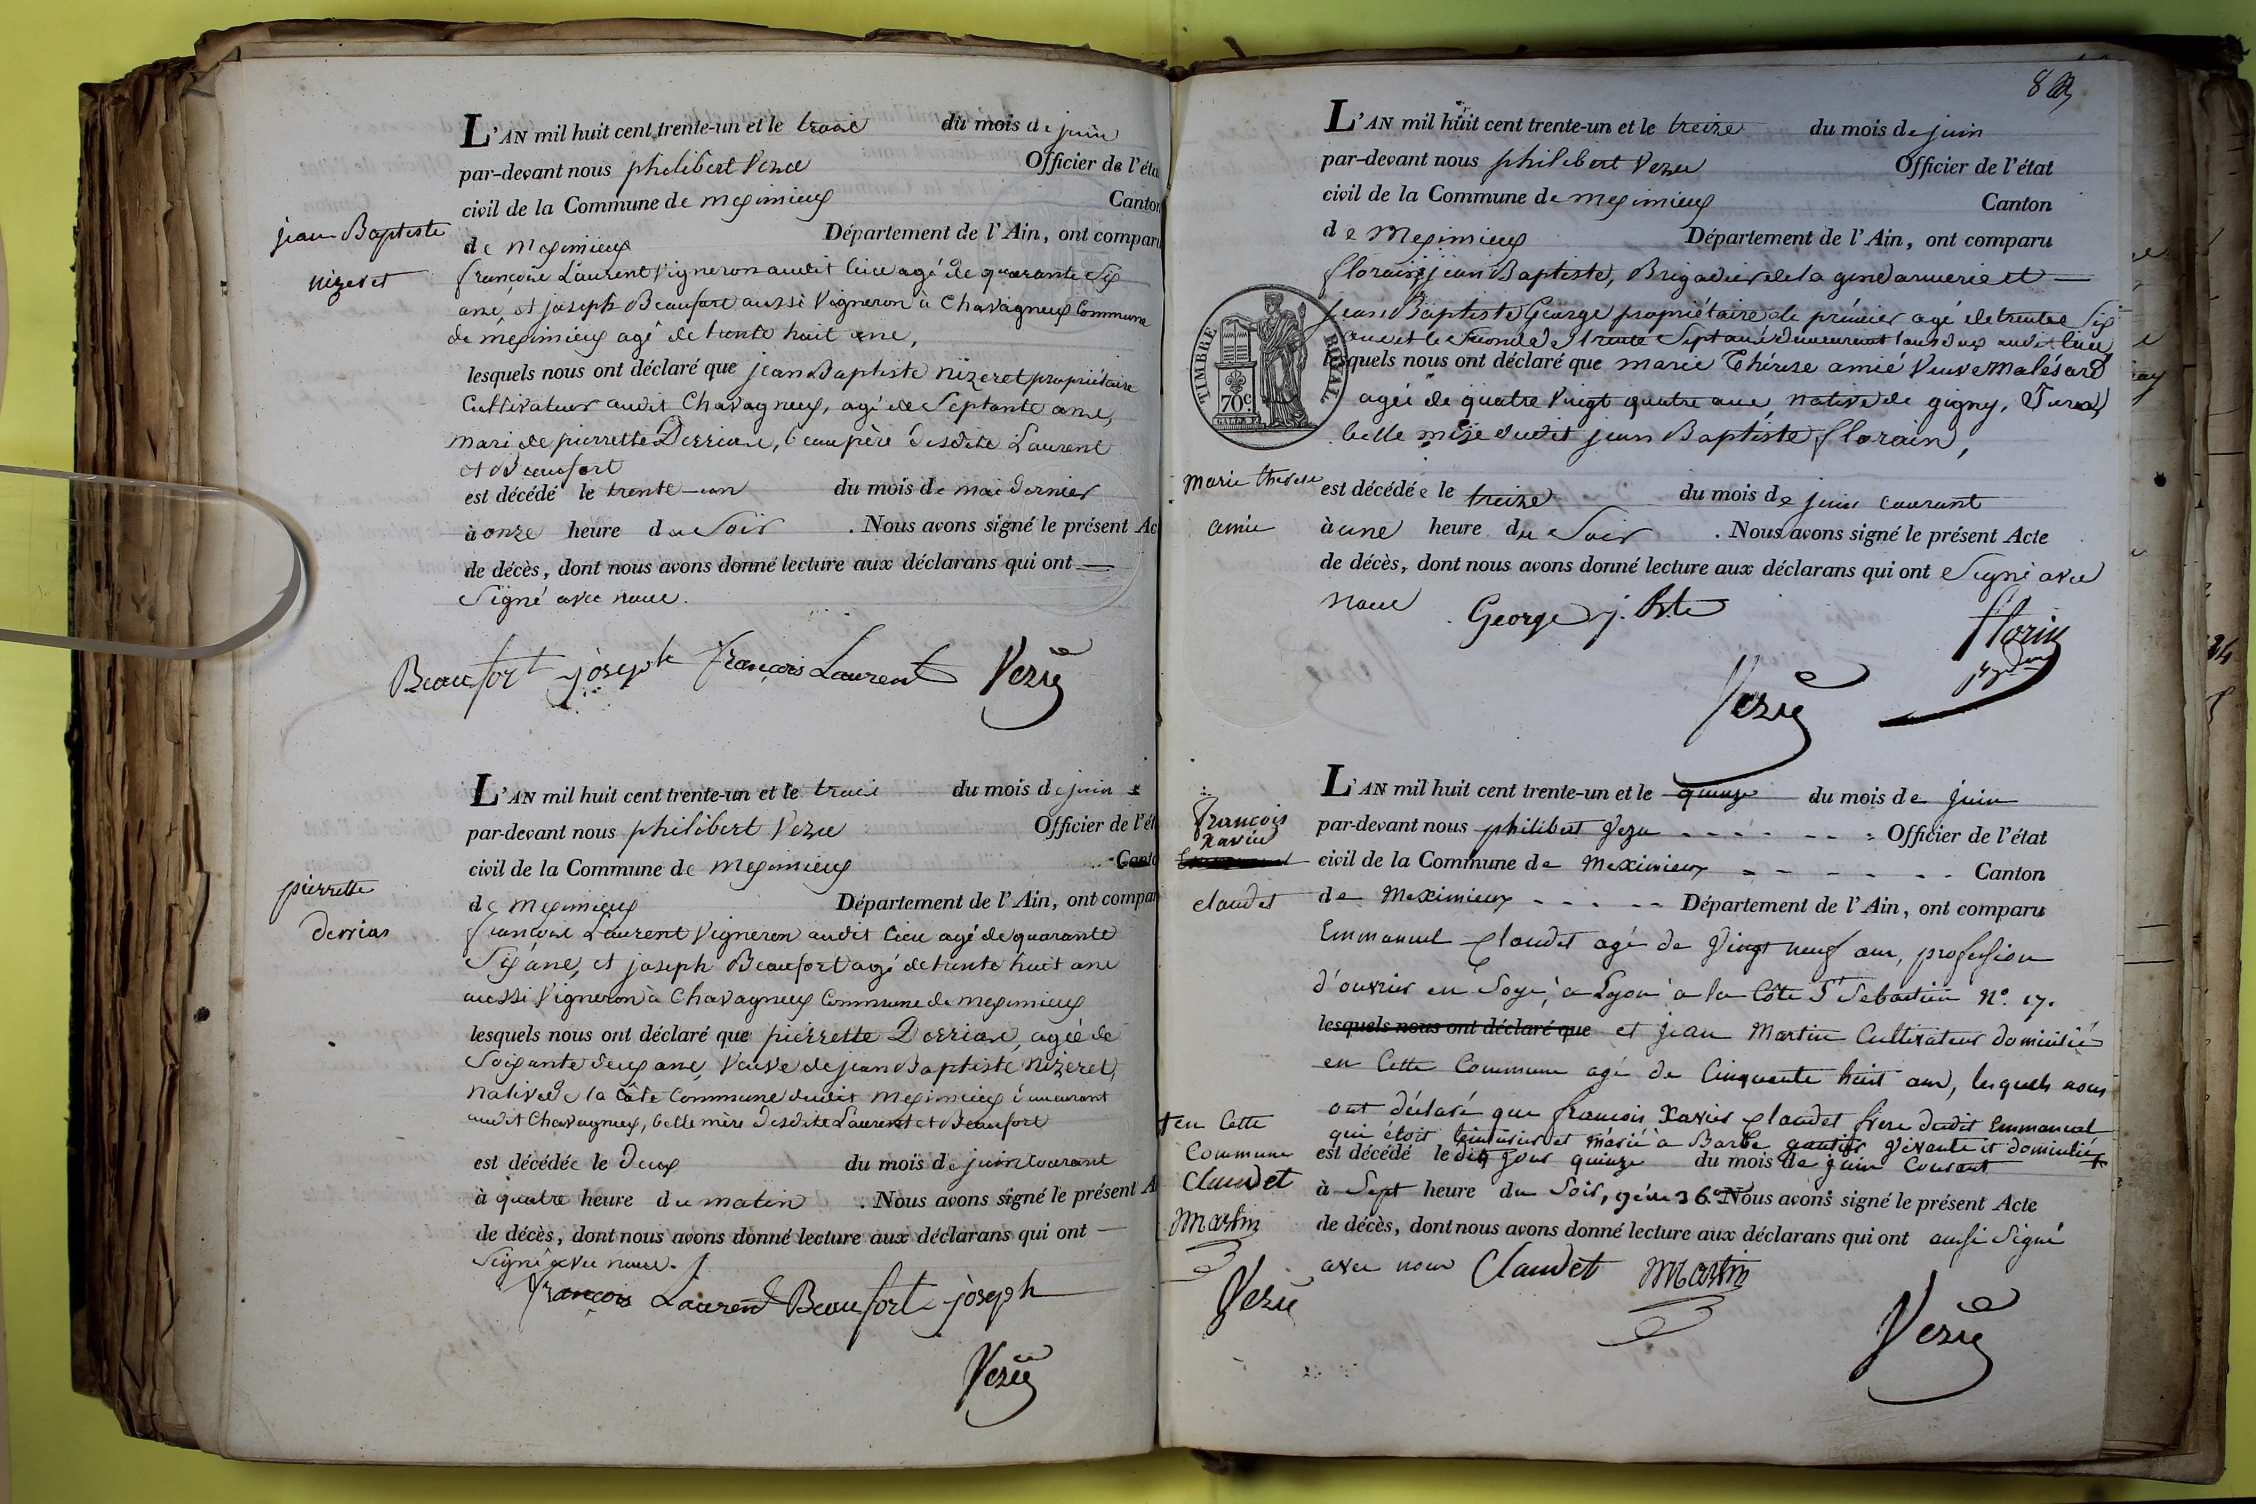 jean Baptiste
nizeret
L'AN mil huit cent trente-un et le trois du mois de juin
par-devant nous philibert Vezu Officier de l'éta
civil de la Commune de meximieux Canton
de meximieux Département de l'Ain, ont comparu
françois Laurent Vigneron audit lieu agé de quarante Six
ans, et joseph Beaufort aussi Vigneron à Chavagneux Commune
de méximieux agé de trente huit ans,
lesquels nous ont déclaré que jean Baptiste nizeret propriétaire
Cultivateur audit Chavagneux, agé de Septante ans,
mari de pierrette Derrias, beaupère desdits Laurent
et Beaufort
est décédé le trente-un du mois de mai dernier
à onze heure du Soir . Nous avons signé le présent Ac
de décès, dont nous avons donné lecture aux déclarans qui ont
Signé avec nous.
Beaufort joseph françois Laurent Vezu
pierrette
derrias
L'AN mil huit cent trente-un et le trois du mois de juin
par-devant nous philibert Vezu Officier de l'ét
civil de la Commune de meximieux Canto
de meximieux Département de l'Ain, ont compar
françois Laurent Vigneron audit lieu agé de quarante
Six ans, et joseph Beaufort agé de trente huit ans
aussi Vigneron à Chavagneux Commune de meximieux
lesquels nous ont déclaré que pierrette Derrias, agée de
Soixante deux ans, Veuve de jean Baptiste Nizeret,
native de la Côte Commune dudit meximieux demeurant
audit Chavagneux, belle mère desdits Laurent et Beaufort
est décédée le deux du mois de juin courant
à quatre heure du matin . Nous avons signé le présent A
de décès, dont nous avons donné lecture aux déclarans qui ont
Signé avec nous.
François Laurent Beaufort joseph
Vezu
L'AN mil huit cent trente-un et le treize du mois de juin
par-devant nous philibert Vezu Officier de l'état
civil de la Commune de meximieux Canton
de Meximieux Département de l'Ain, ont comparu
florain, jean Baptiste, Brigadier de la gendarmerie et
jean Baptiste George propriétaire le prémier agé de trente Six
ans et le Second de trente Sept ans demeurant tous deux audit lieu
TIMBRE ROYAL
70c
lesquels nous ont déclaré que marie Thérèse amié Veuve Malésard
agée de quatre Vingt quatre ans, native de gigny, (Jura)
belle mère dudit jean Baptiste florain,
Marie therese
amie
est décédée le treize du mois de juin courant
à une heure du Soir . Nous avons signé le présent Acte
de décès, dont nous avons donné lecture aux déclarans qui ont Signé avec
nous George j. Bte florin
Vezu
François
Xavier
claudet
L'AN mil huit cent trente-un et le quinze du mois de juin
par-devant nous philibert Vezu Officier de l'état
civil de la Commune de Meximieux Canton
de Meximieux Département de l'Ain, ont comparu
Emmanuel Claudet agé de Vingt neuf ans, profession
d'ouvrier en Soye, à Lyon à la Côte St Sebastien No. 17.
lesquels nous ont déclaré que et jean Martin Cultivateur domicilié
en Cette Commune agé de Cinquante huit ans, lesquels nous
ont déclaré que françois Xavier Claudet frère dudit Emmanuel
qui étoit teinturier et marié à Barbe gautier Vivante et domicilié +
est décédé le dit jour quinze du mois de juin Courant
à Sept heure du Soir, agé de 36 ans Nous avons signé le présent Acte
de décès, dont nous avons donné lecture aux déclarans qui ont aussi Signé
avec nous Claudet Martin
Vezu
+ en Cette
Commune
Claudet
Martin
Vezu